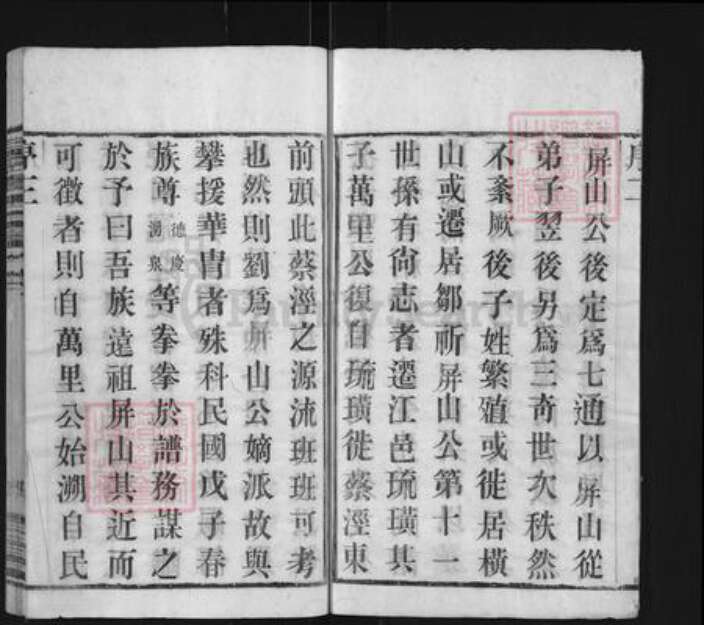 屏山公後定爲七通以屏山從
弟子翌後另爲三奇世次秩然
不紊厥後子姓繁殖或徙居橫
山或遷居鄒祈屏山公第十一
世孫有尚志者遷江邑琉璜其
子萬里公復自琉璜徙蔡涇東
前頭此蔡涇之源流班班可考
也然則劉爲屏山公嫡派故與
攀援華冑者殊科民國戊子春
族尊德俊湧泉等拳拳於譜務謀之
於予曰吾族遠祖屏山其近而
可徵者則自萬里公始溯自民
序三